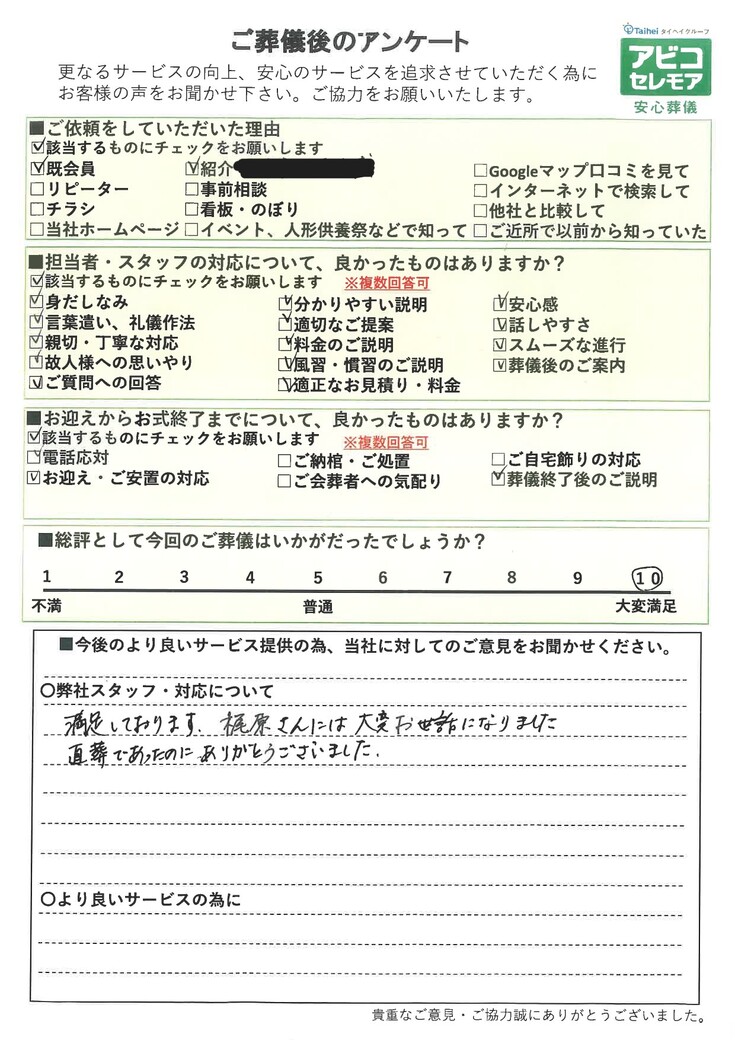 ご葬儀後のアンケート
Taihei タイヘイグループ
アビコ
セレモア
安心葬儀
更なるサービスの向上、安心のサービスを追求させていただく為に
お客様の声をお聞かせ下さい。ご協力をお願いいたします。
■ご依頼をしていただいた理由
☑該当するものにチェックをお願いします
☑既会員 ☑紹介 □Googleマップ口コミを見て
□リピーター □事前相談 □インターネットで検索して
□チラシ □看板・のぼり □他社と比較して
□当社ホームページ □イベント、人形供養祭などで知って □ご近所で以前から知っていた
■担当者・スタッフの対応について、良かったものはありますか？
☑該当するものにチェックをお願いします ※複数回答可
☑身だしなみ ☑分かりやすい説明 ☑安心感
☑言葉遣い、礼儀作法 ☑適切なご提案 ☑話しやすさ
☑親切・丁寧な対応 ☑料金のご説明 ☑スムーズな進行
☑故人様への思いやり ☑風習・慣習のご説明 ☑葬儀後のご案内
☑ご質問への回答 ☑適正なお見積り・料金
■お迎えからお式終了までについて、良かったものはありますか？
☑該当するものにチェックをお願いします ※複数回答可
☑電話応対 □ご納棺・ご処置 □ご自宅飾りの対応
☑お迎え・ご安置の対応 □ご会葬者への気配り ☑葬儀終了後のご説明
■総評として今回のご葬儀はいかがだったでしょうか？
1 2 3 4 5 6 7 8 9 10
不満 普通 大変満足
■今後のより良いサービス提供の為、当社に対してのご意見をお聞かせください。
〇弊社スタッフ・対応について
満足しております。梶原さんには大変お世話になりました
直葬であったのにありがとうございました。
〇より良いサービスの為に
貴重なご意見・ご協力誠にありがとうございました。